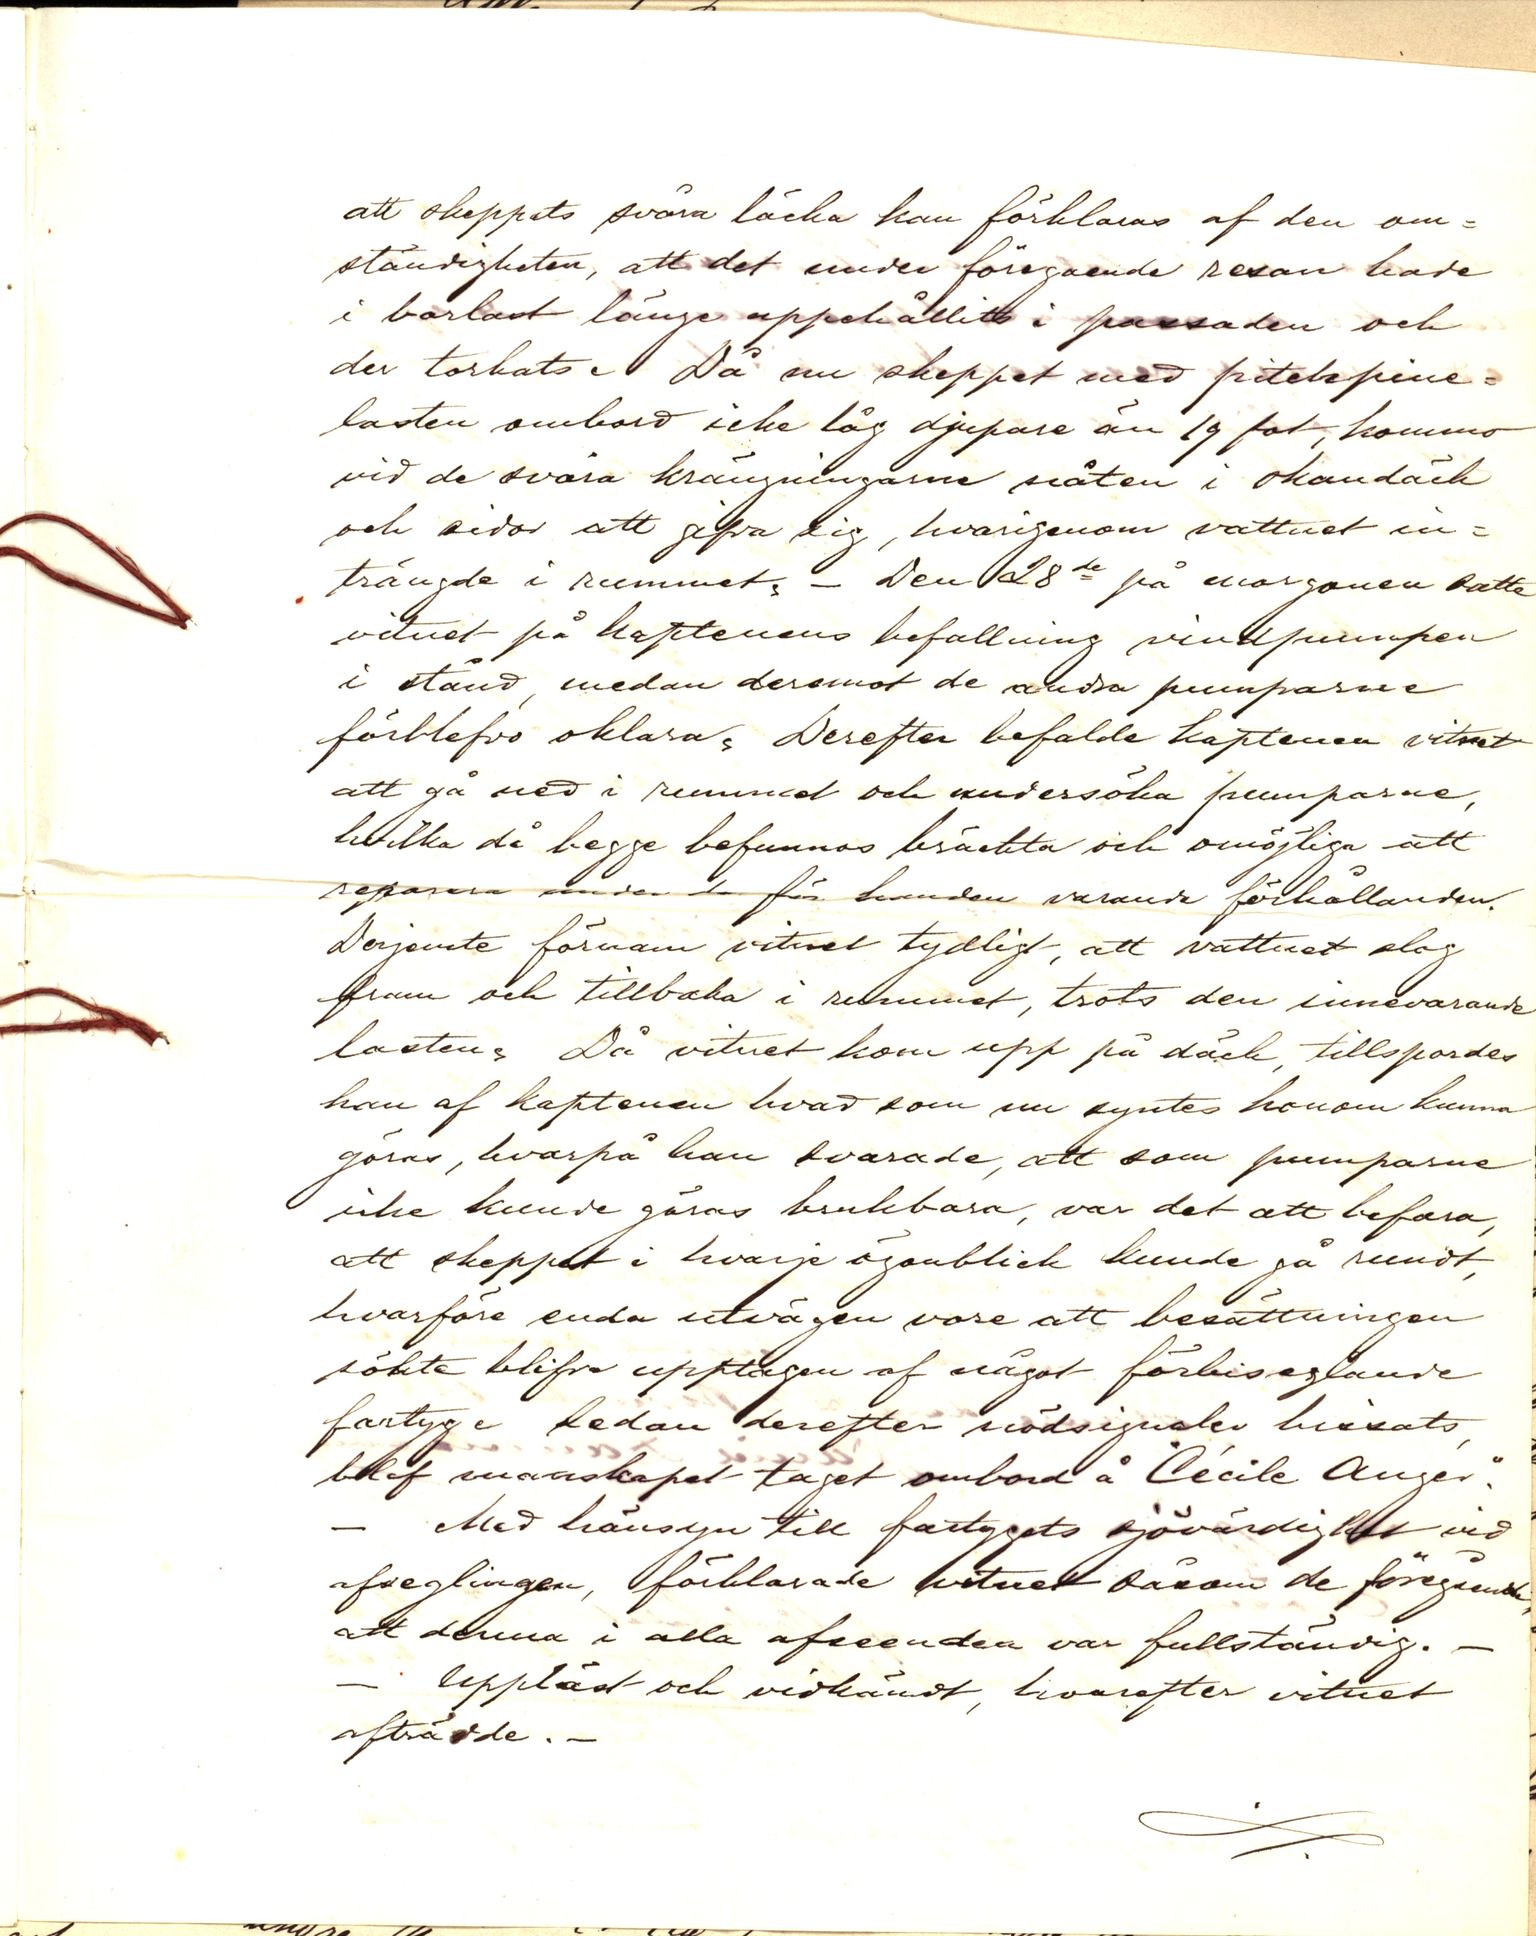 att skeppets svåra läcka kan förklaras af den om=
ständigheten, att det under föregaende resan hade
i barlast länge uppehållits i passaden och
der torkats. Då nu skeppet med pitchpine=
lasten ombord icke låg djupare än 19 fot, kommo
vid de svåra krängningarne nåten i skandäck
och sidor att gifva sig, hvarigenom vattnet in=
trängde i rummet. – Den 28de på morgonen satte
vitnet på kaptenens befallning vindpumpen
i stånd, medan deremot de andra pumparne
förblefvo oklara. Derefter befalde kaptenen vitnet
att gå ned i rummet och undersöka pumparne,
hvilka då begge befunnos bräckta och omöjliga att
reparera under de för handen varande förhållanden.
Derjemte förnam vitnet tydligt, att vattnet slog
fram och tillbaka i rummet, trots den innevarande
lasten. Då vitnet kom upp på däck, tillspordes
han af kaptenen hvad som nu syntes honom kunna
göras, hvarpå han svarade, att som pumparne
icke kunde göras brukbara, var det att befara,
att skeppet i hvarje ögonblick kunde gå rundt,
hvarföre enda utvägen vore att besättningen
sökte blifva upptagen af något förbiseglande
fartyg. Sedan derefter nödsignaler hissats,
blef manskapet taget ombord å "Cécile Auger".
– Med hänsyn till fartygets sjövärdighet vid
afseglingen, förklarade vitnet såsom de föregående,
att denna i alla afseenden var fullständig. –
– Uppläst och vidkändt, hvarefter vitnet
afträdde. –